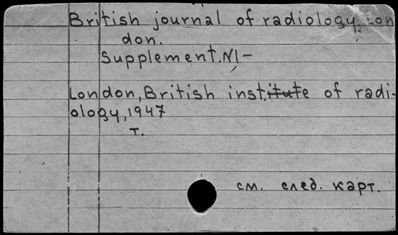 British journal of radiology. Lon
don.
Supplement. N1-
London, British institute of radi-
ology, 1947
т.
см. след. карт.